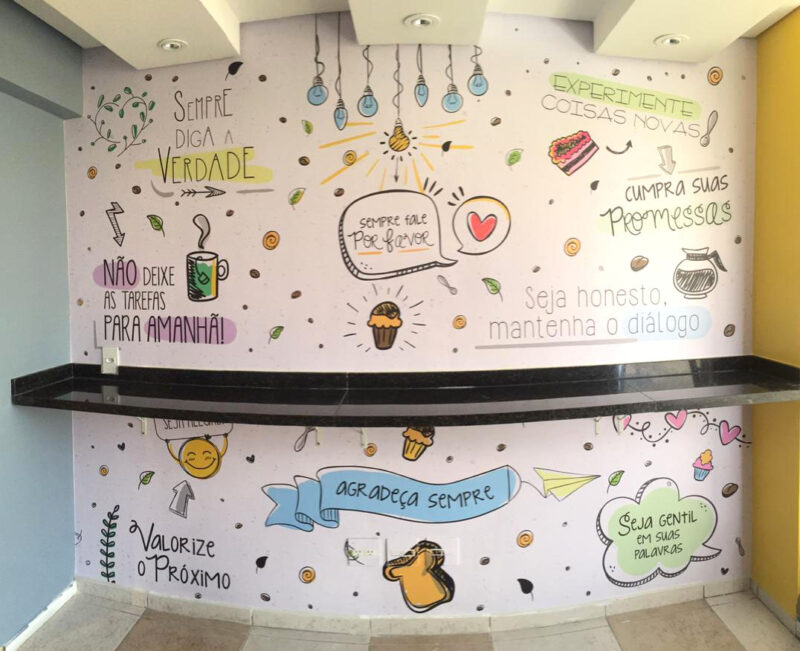 SEMPRE
DIGA A
VERDADE
EXPERIMENTE
COISAS NOVAS
CUMPRA SUAS
PROMESSAS
SEMPRE FALE
POR FAVOR
NÃO DEIXE
AS TAREFAS
PARA AMANHÃ!
Seja honesto,
mantenha o diálogo
AGRADEÇA SEMPRE
VALORIZE
O PRÓXIMO
SEJA GENTIL
EM SUAS
PALAVRAS